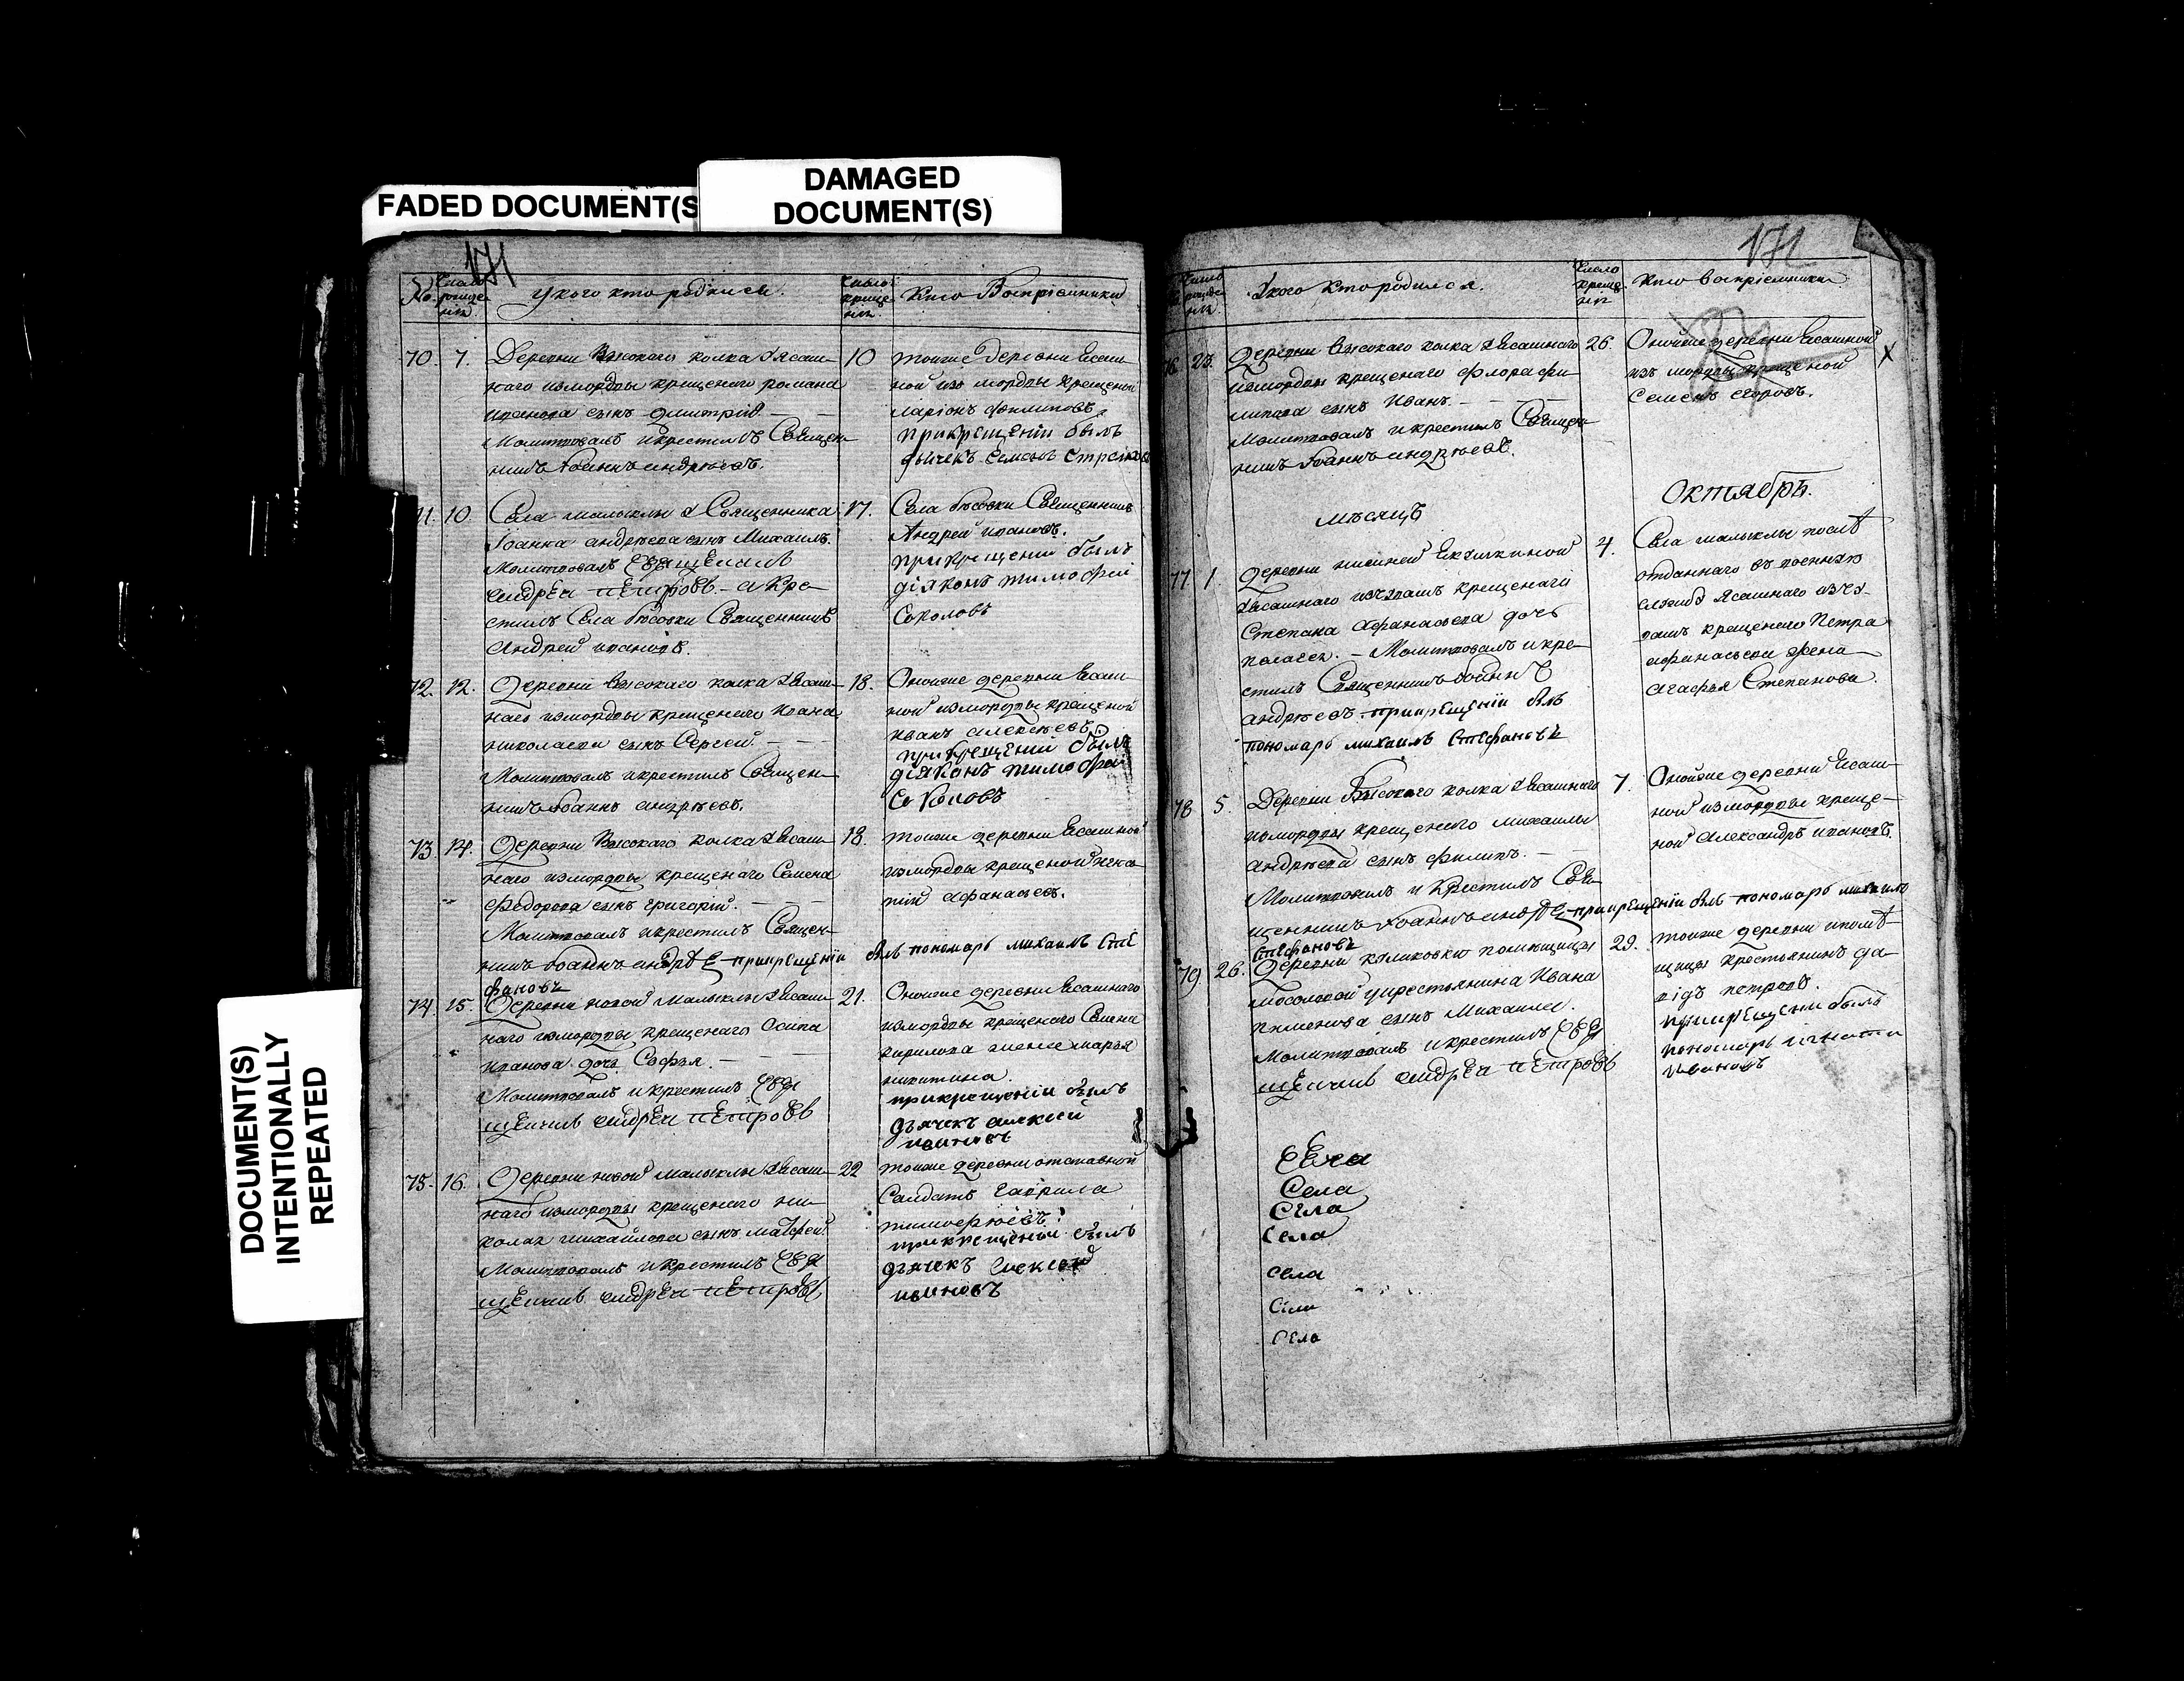 FADED DOCUMENT(S
DAMAGED
DOCUMENT(S)
DOCUMENT(S)
INTENTIONALLY
REPEATED
171
No.
Число рожде нія.
У кого кто родился.
Число креще нія
Кто Воспріемники
70. 7. Деревни Высокаго колка у ясаш-
наго измордвы крещенаго романа
иванова сынъ Дмитрій. — —
Молитвовалъ и крестилъ Священ-
никъ Іоаннъ андрѣевъ.
10 тоиже деревни Ясаш-
ной изъ мордвы крещеной
ларіонъ филиповъ,
прикрещеніи былъ
дьячекъ Семенъ
71. 10. Села малыклы у Священника
Іоанна андрѣева сынъ Михаилъ.
Молитвовалъ Священникъ
андрей петровъ. — а кре-
стилъ Села Священникъ
Андрей ивановъ.
17. Села Священникъ
Андрей ивановъ.
прикрещеніи былъ
діяконъ тимофей
Соколовъ
72. 12. Деревни Высокаго колка у Ясаш-
наго измордвы крещенаго Ивана
николаева сынъ Сергей. — —
Молитвовалъ и крестилъ Священ-
никъ Іоаннъ андрѣевъ.
18. Оноиже деревни Ясаш-
ной измордвы крещеной
иванъ алексѣевъ
прикрещеніи былъ
діяконъ тимофей
Соколовъ
73. 14. Деревни Высокаго колка у Ясаш-
наго измордвы крещенаго Семена
Федорова сынъ григорій. — —
Молитвовалъ и крестилъ Священ-
никъ Іоаннъ андрѣе прикрещеніи былъ пономарь михаилъ Сте
фановъ
18. тоиже деревни Ясашной
измордвы крещеной игна-
тій афанасьевъ.
74. 15. Деревни новой Малыклы у Ясаш-
наго измордвы крещенаго Осипа
иванова дочь Софья. — —
Молитвовалъ и крестилъ Свя
щенникъ андрей петровъ
21. Оноиже деревни Ясашнаго
измордвы крещенаго Семена
кирилова жена марья
никитина.
прикрещеніи былъ
дьячекъ алексей
ивановъ
75. 16. Деревни новой малыклы у Ясаш-
наго измордвы крещенаго ни-
колая михайлова сынъ матфей.
Молитвовалъ и крестилъ Свя
щенникъ андрей петровъ
22 тоиже деревни отставной
Салдатъ гаврила
тимофѣевъ.
прикрещеніи былъ
дьячекъ алексей
ивановъ
171
Число рожде нія.
У кого кто родился.
Число креще нія
Кто воспріемники
76 23. Деревни Высокаго колка у Ясашнаго
измордвы крещенаго флора фи-
липова сынъ Иванъ. — —
Молитвовалъ и крестилъ Священ-
никъ Іоаннъ андрѣевъ.
26. Оноиже деревни Ясашной
изъ мордвы крещеной
Семенъ егоровъ.
X
мѣсяцъ
Октябрь.
77 1. Деревни нижней Екушкиной
у Ясашнаго изчувашъ крещенаго
Степана афанасьева дочь
пелагея. — Молитвовалъ и кре-
стилъ Священникъ Іоаннъ
андрѣевъ. прикрещеніи былъ
пономарь михаилъ Стефановъ
4. Села малыклы послѣ
отданнаго въ военную
службу Ясашнаго изчу-
вашъ крещенаго Петра
афанасьева жена
агафья Степанова.
78 5. Деревни Высокаго колка у Ясашнаго
измордвы крещенаго михаилы
андрѣева сынъ филипъ. —
Молитвовалъ и крестилъ Свя-
щенникъ Іоаннъ андрѣе прикрещеніи былъ пономарь михаилъ
Стефановъ
7. Оноиже деревни Ясаш-
ной измордвы креще-
ной Александръ ивановъ.
79 26. Деревни куликовки помѣщицы
мосоловой укрестьянина Ивана
пименова сынъ Михаилъ.
Молитвовалъ и крестилъ Свя
щенникъ андрей петровъ
29. тоиже деревни и помѣ-
щицы крестьянинъ да-
видъ петровъ.
прикрещеніи былъ
пономарь игнатій
ивановъ
Села
Села
Села
села
Села
села